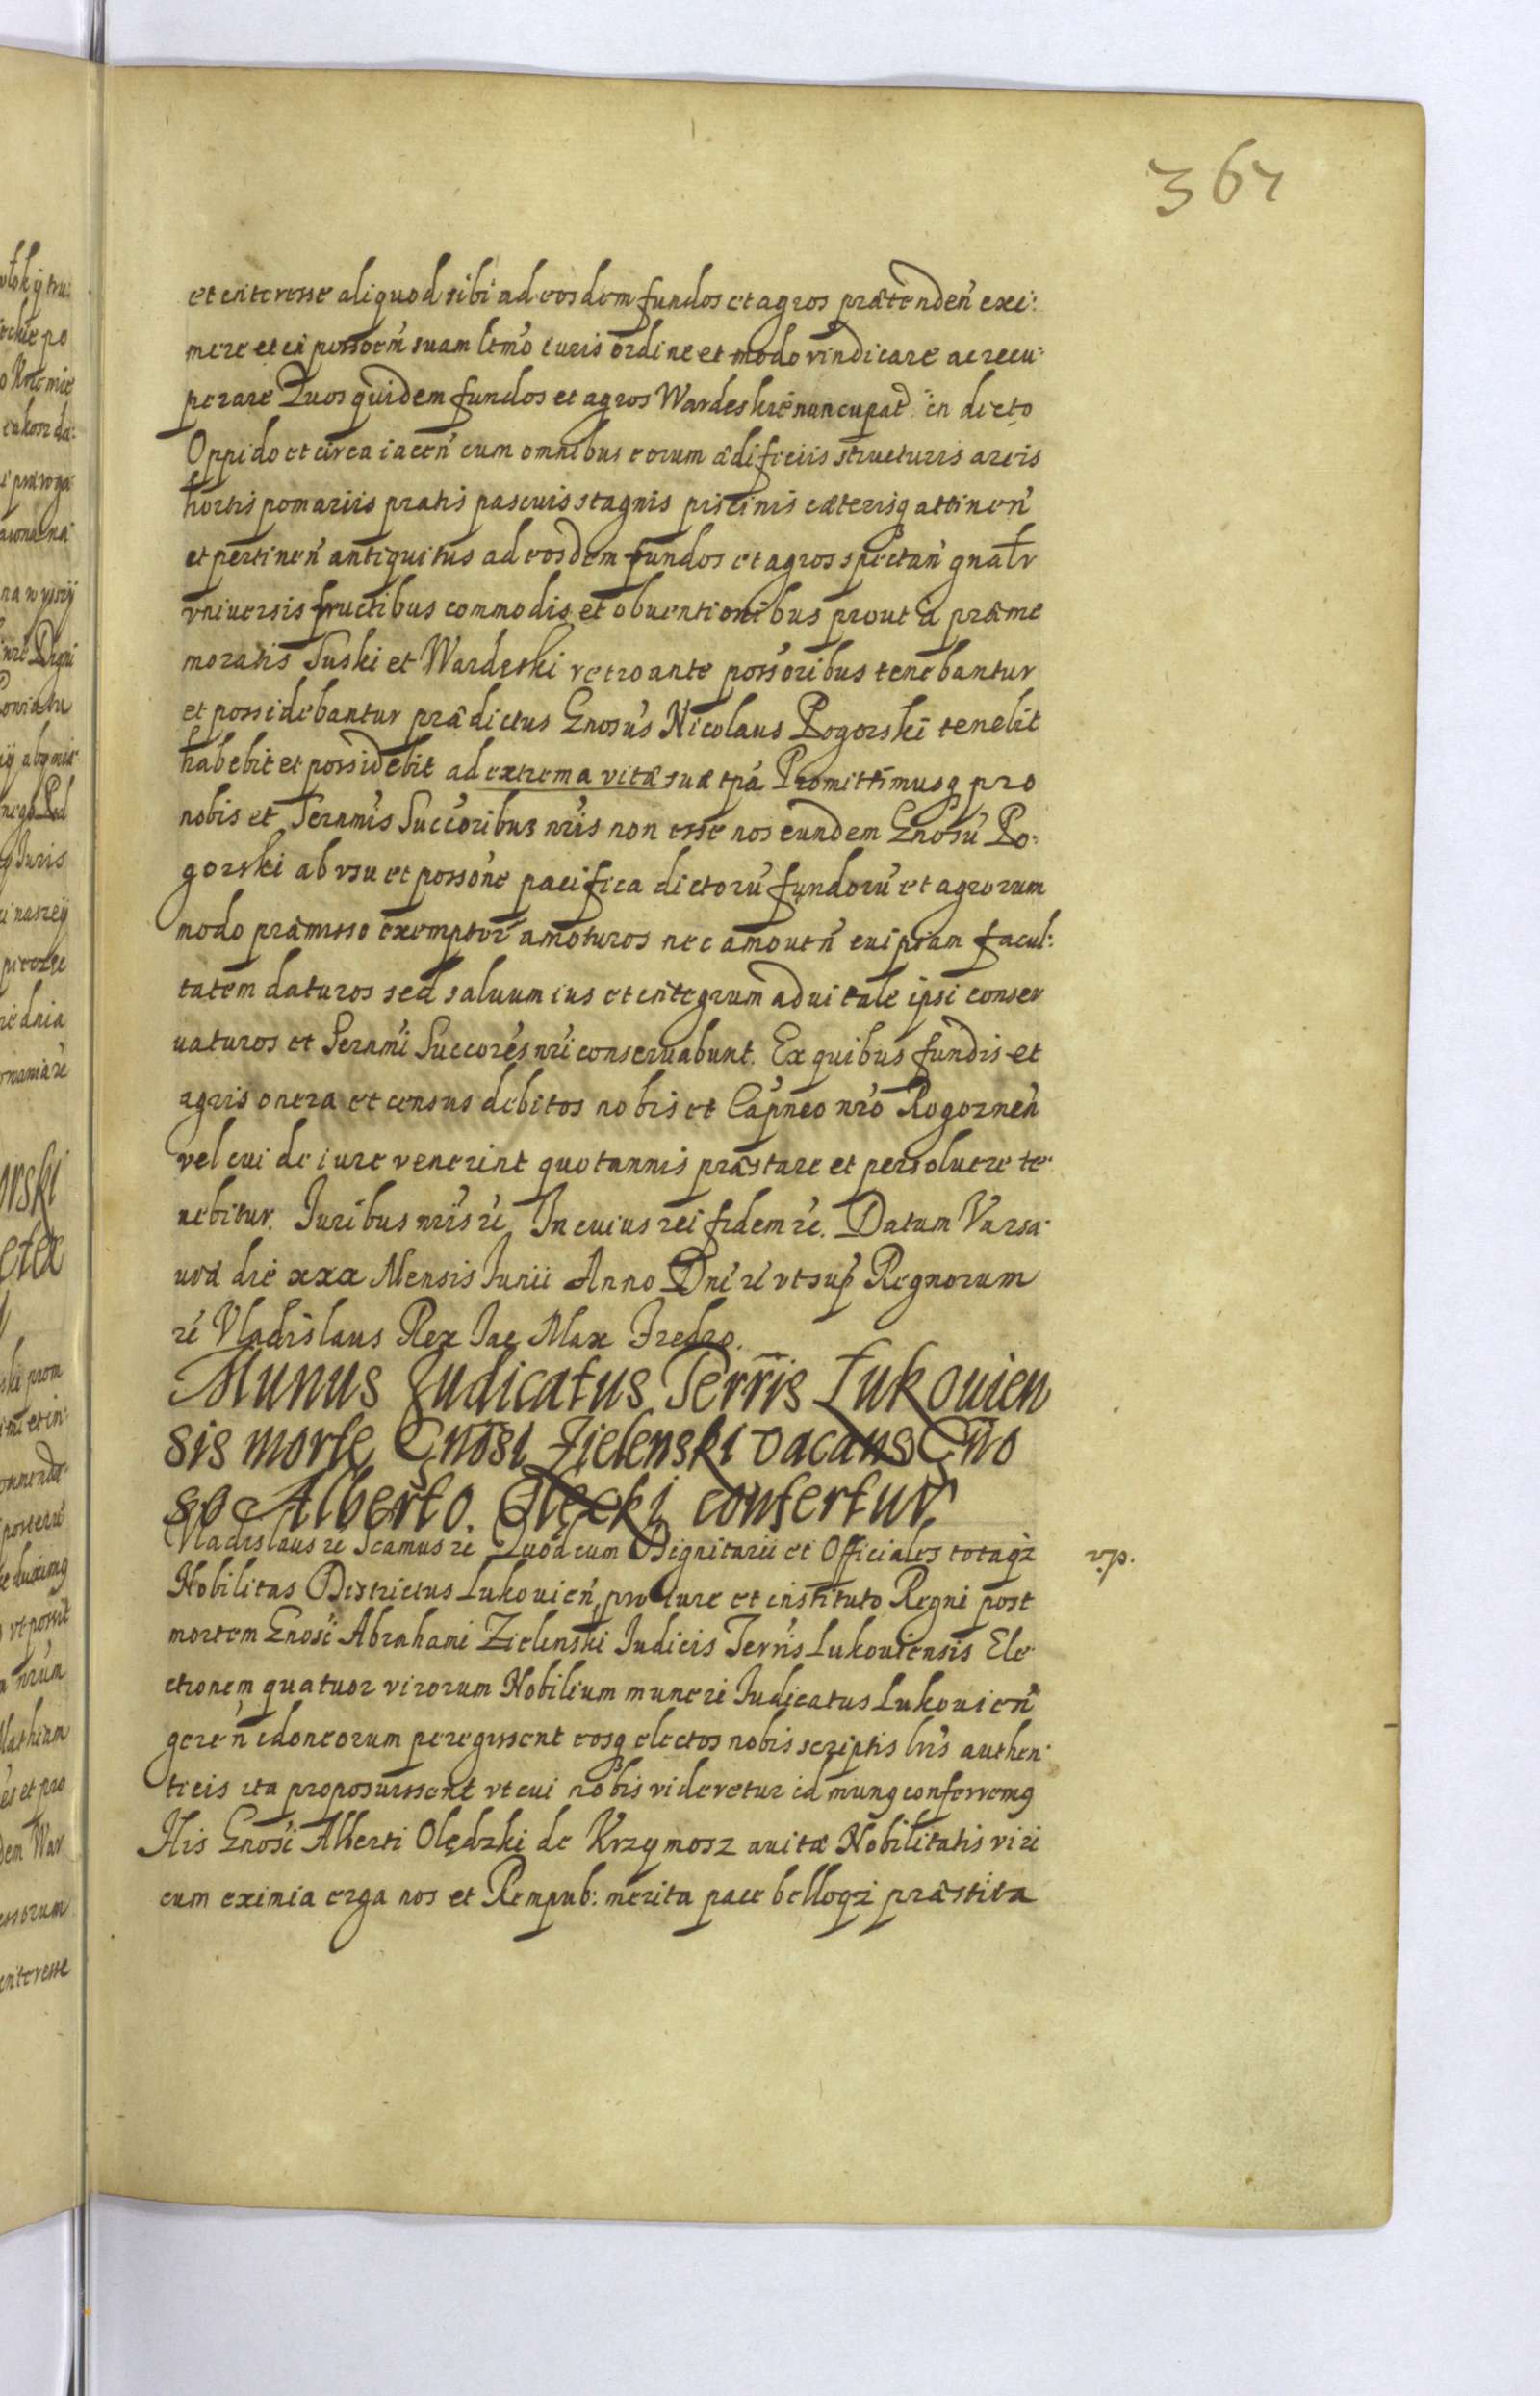 367
et interesse aliquod sibi ad eosdem fundos et agros prætenden̄ exi:
mere et in possoēm suam ltmo iuris ordine et modo vindicare ac recu:
perare Quos quidem fundos et agros Wardeskie nuncupat: in dicto
Oppido et circa iacen̄ cum omnibus eorum ædificiis structuris areis
hortis pomariis pratis pascuis stagnis piscinis cæterisq attinen̄
et pertinen̄ antiquitus ad eosdem fundos et agros spectan̄ gnalr
vniuersis fructibus commodis et obuentionibus prout à præme
moratis Suski et Wardeski retroante possoribus tenebantur
et possidebantur prædictus Gnosus Nicolaus Pogorski tenebit
habebit et possidebit ad extrema vitæ suæ tpa Promittimusq pro
nobis et Sernmis Succoribus nris non esse nos eundem Gnosū Po:
gorski ab vsu et possone pacifica dictorū fundorū et agrorum
modo præmisso exemptor amoturos nec amouen̄ cuipiam facul:
tatem daturos sed saluum ius et integrum aduitale ipsi conser
uaturos et Sernmi Succores nri conseruabunt. Ex quibus fundis et
agris onera et census debitos nobis et Capneo nro Rogoznen̄
vel cui de iure venerint quotannis præstare et persoluere te
nebitur. Iuribus nris rē In cuius rei fidem rē. Datum Varsa:
uiæ die xxx Mensis Iunii Anno Dni rē vt sup Regnorum
rē Vladislaus Rex Iac Max Fredro.
Munus Judicatus Terris Łukouien
sis morte Gnosi Zielenski vacans Gno
so Alberto Olęcki confertur
Vladislaus rē Scamus rē Quod cum Dignitarii et Officiales totaq
Nobilitas Districtus Lukouien̄, pro iure et instituto Regni post
mortem Gnosi Abrahami Zielenski Iudicis Terris Lukouiensis Ele
ctionem quatuor virorum Nobilium muneri Iudicatus Lukouien̄
geren̄ idoneorum peregissent eosq electos nobis scriptis lris authen:
ticis ita proposuissent vt cui nobis videretur id munq conferremq
His Gnosi Alberti Olędzki de Krzymosz auitæ Nobilitatis viri
cum eximia erga nos et Rempub: merita pace belloq præstita